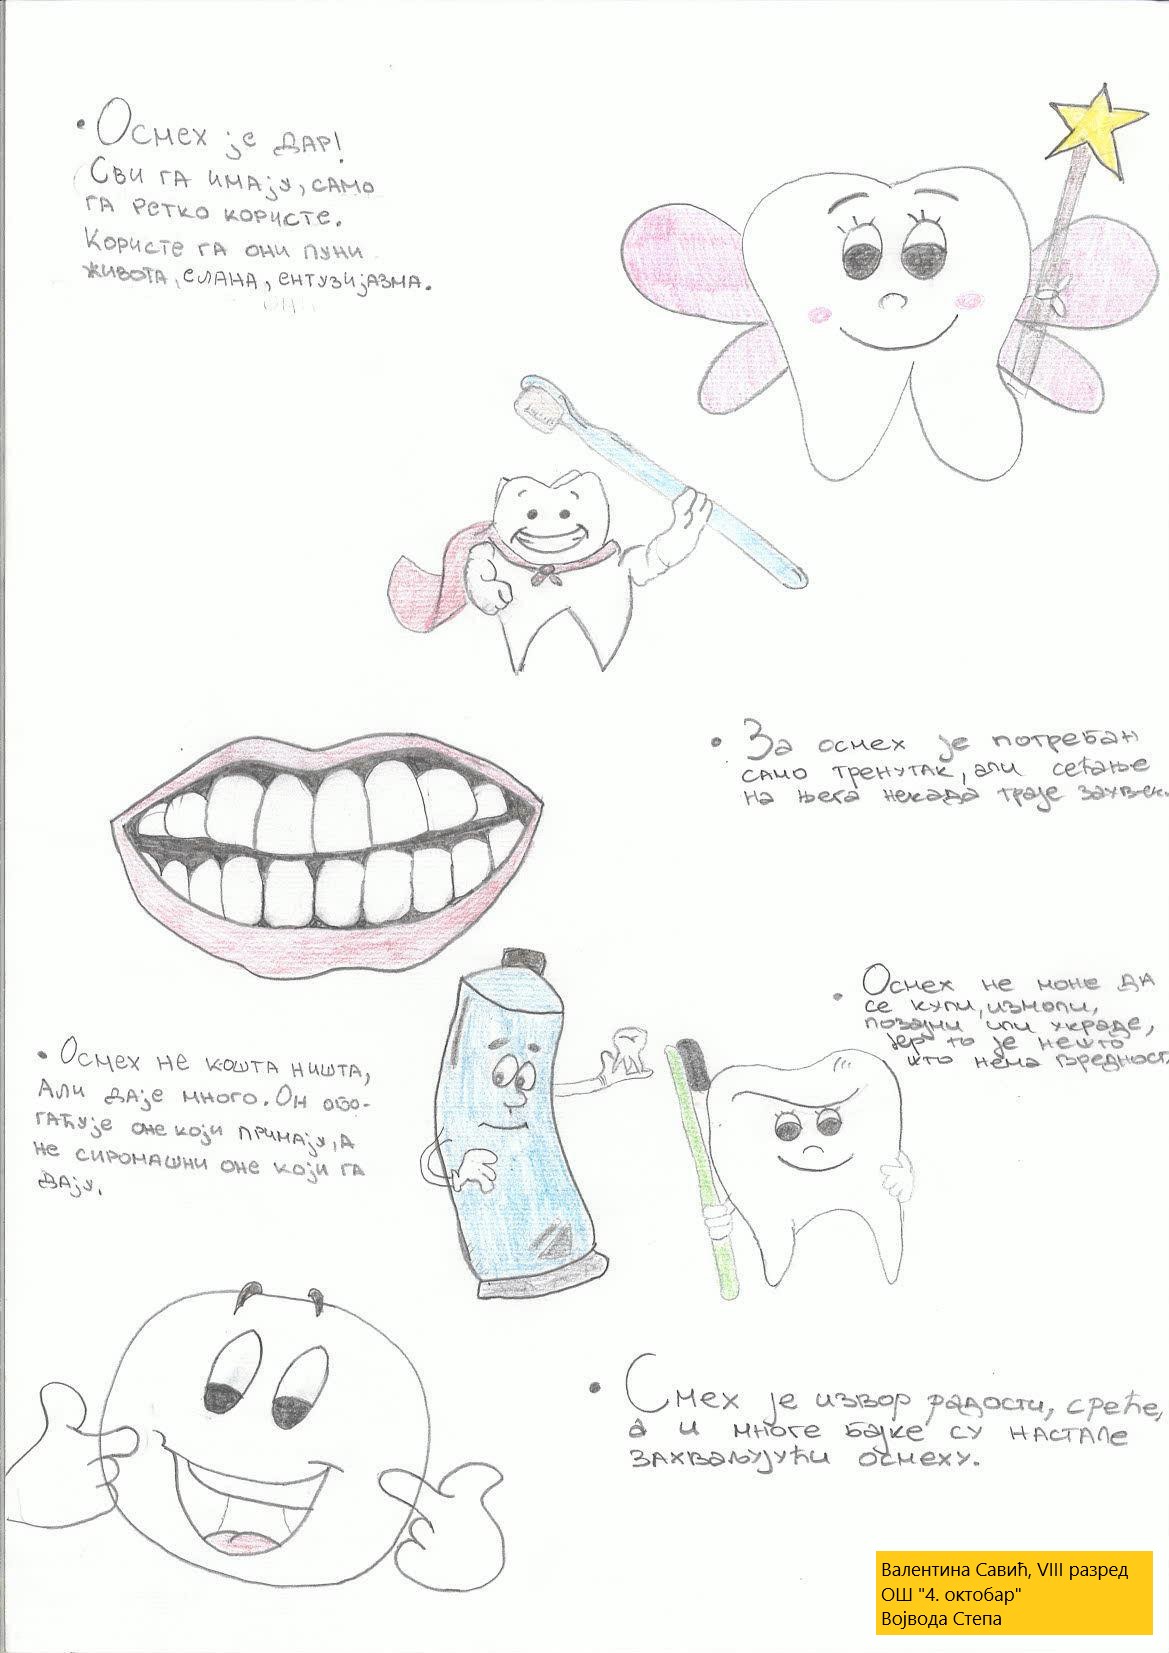 • Осмех је дар!
Сви га имају, само
га ретко користе.
Користе га они пуни
живота, елана, ентузијазма.
• За осмех је потребан
само тренутак, али сећање
на њега некада траје заувек.
• Осмех не може да
се купи, измоли,
позајми или украде,
јер то је нешто
што нема вредност
• Осмех не кошта ништа,
Али даје много. Он обо-
гаћује оне који примају, а
не сиромашни оне који га
дају.
• Смех је извор радости, среће,
а и многе бајке су настале
захваљујући осмеху.
Валентина Савић, VIII разред
ОШ "4. октобар"
Војвода Степа